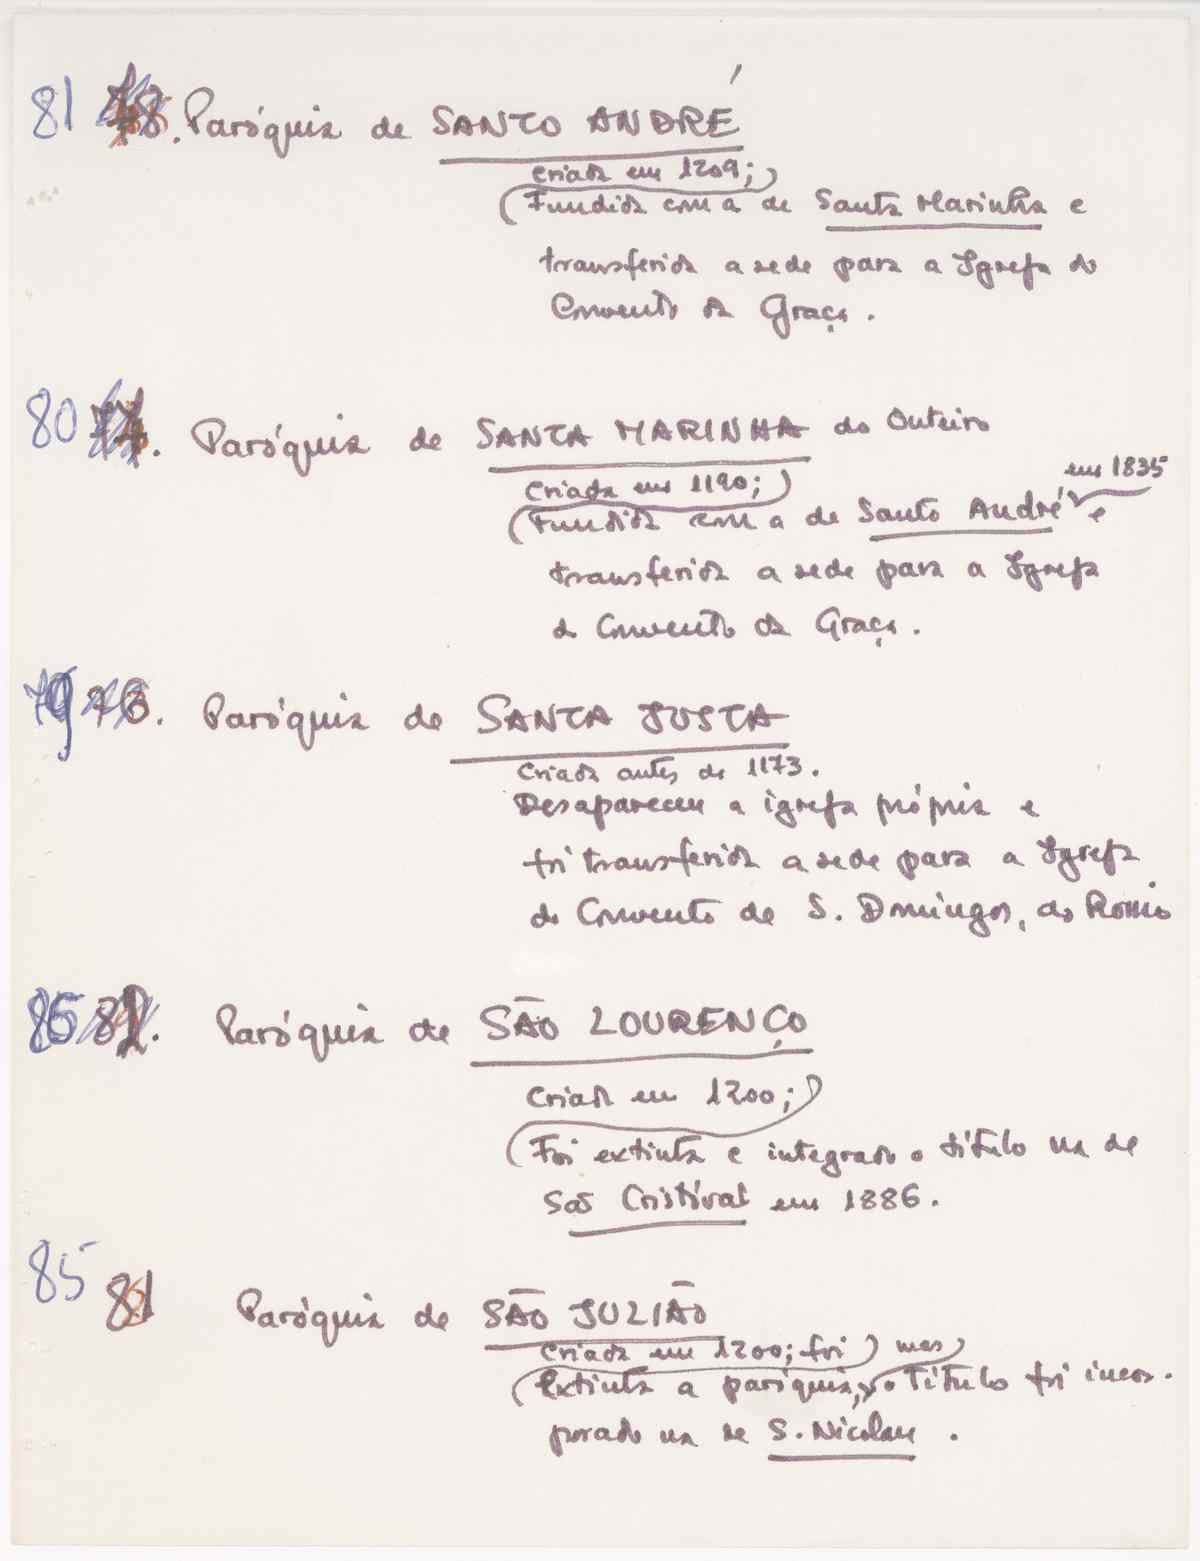 81 78. Paróquia de SANTO ANDRÉ
criada em 1209;
(Fundida com a de Santa Marinha e
transferida a sede para a Igreja do
Convento da Graça.
80 77. Paróquia de SANTA MARINHA do Outeiro
criada em 1190;) em 1835
(Fundida com a de Santo André e
transferida a sede para a Igreja
do Convento da Graça.
79 76. Paróquia de SANTA JUSTA
Criada antes de 1173.
Desapareceu a igreja própria e
foi transferida a sede para a Igreja
do Convento de S. Domingos, do Rossio
86 82. Paróquia de SÃO LOURENÇO
Criada em 1200;)
(Foi extinta e integrado o título na de
São Cristóval em 1886.
85 81 Paróquia de SÃO JULIÃO
Criada em 1200; foi) mas
(Extinta a paróquia, o Título foi incor-
porado na de S. Nicolau.